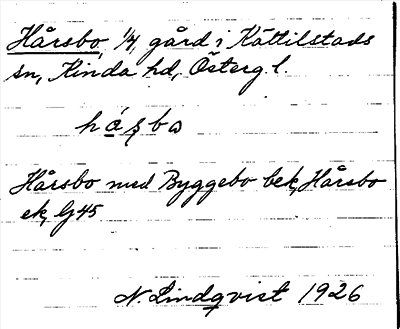 Hårsbo, 1/4, gård i Kättilstads
sn, Kinda hd, Österg.l.
hǻʂbo
Hårsbo med Byggebo bek, Hårsbo
ek, G45
N. Lindqvist 1926